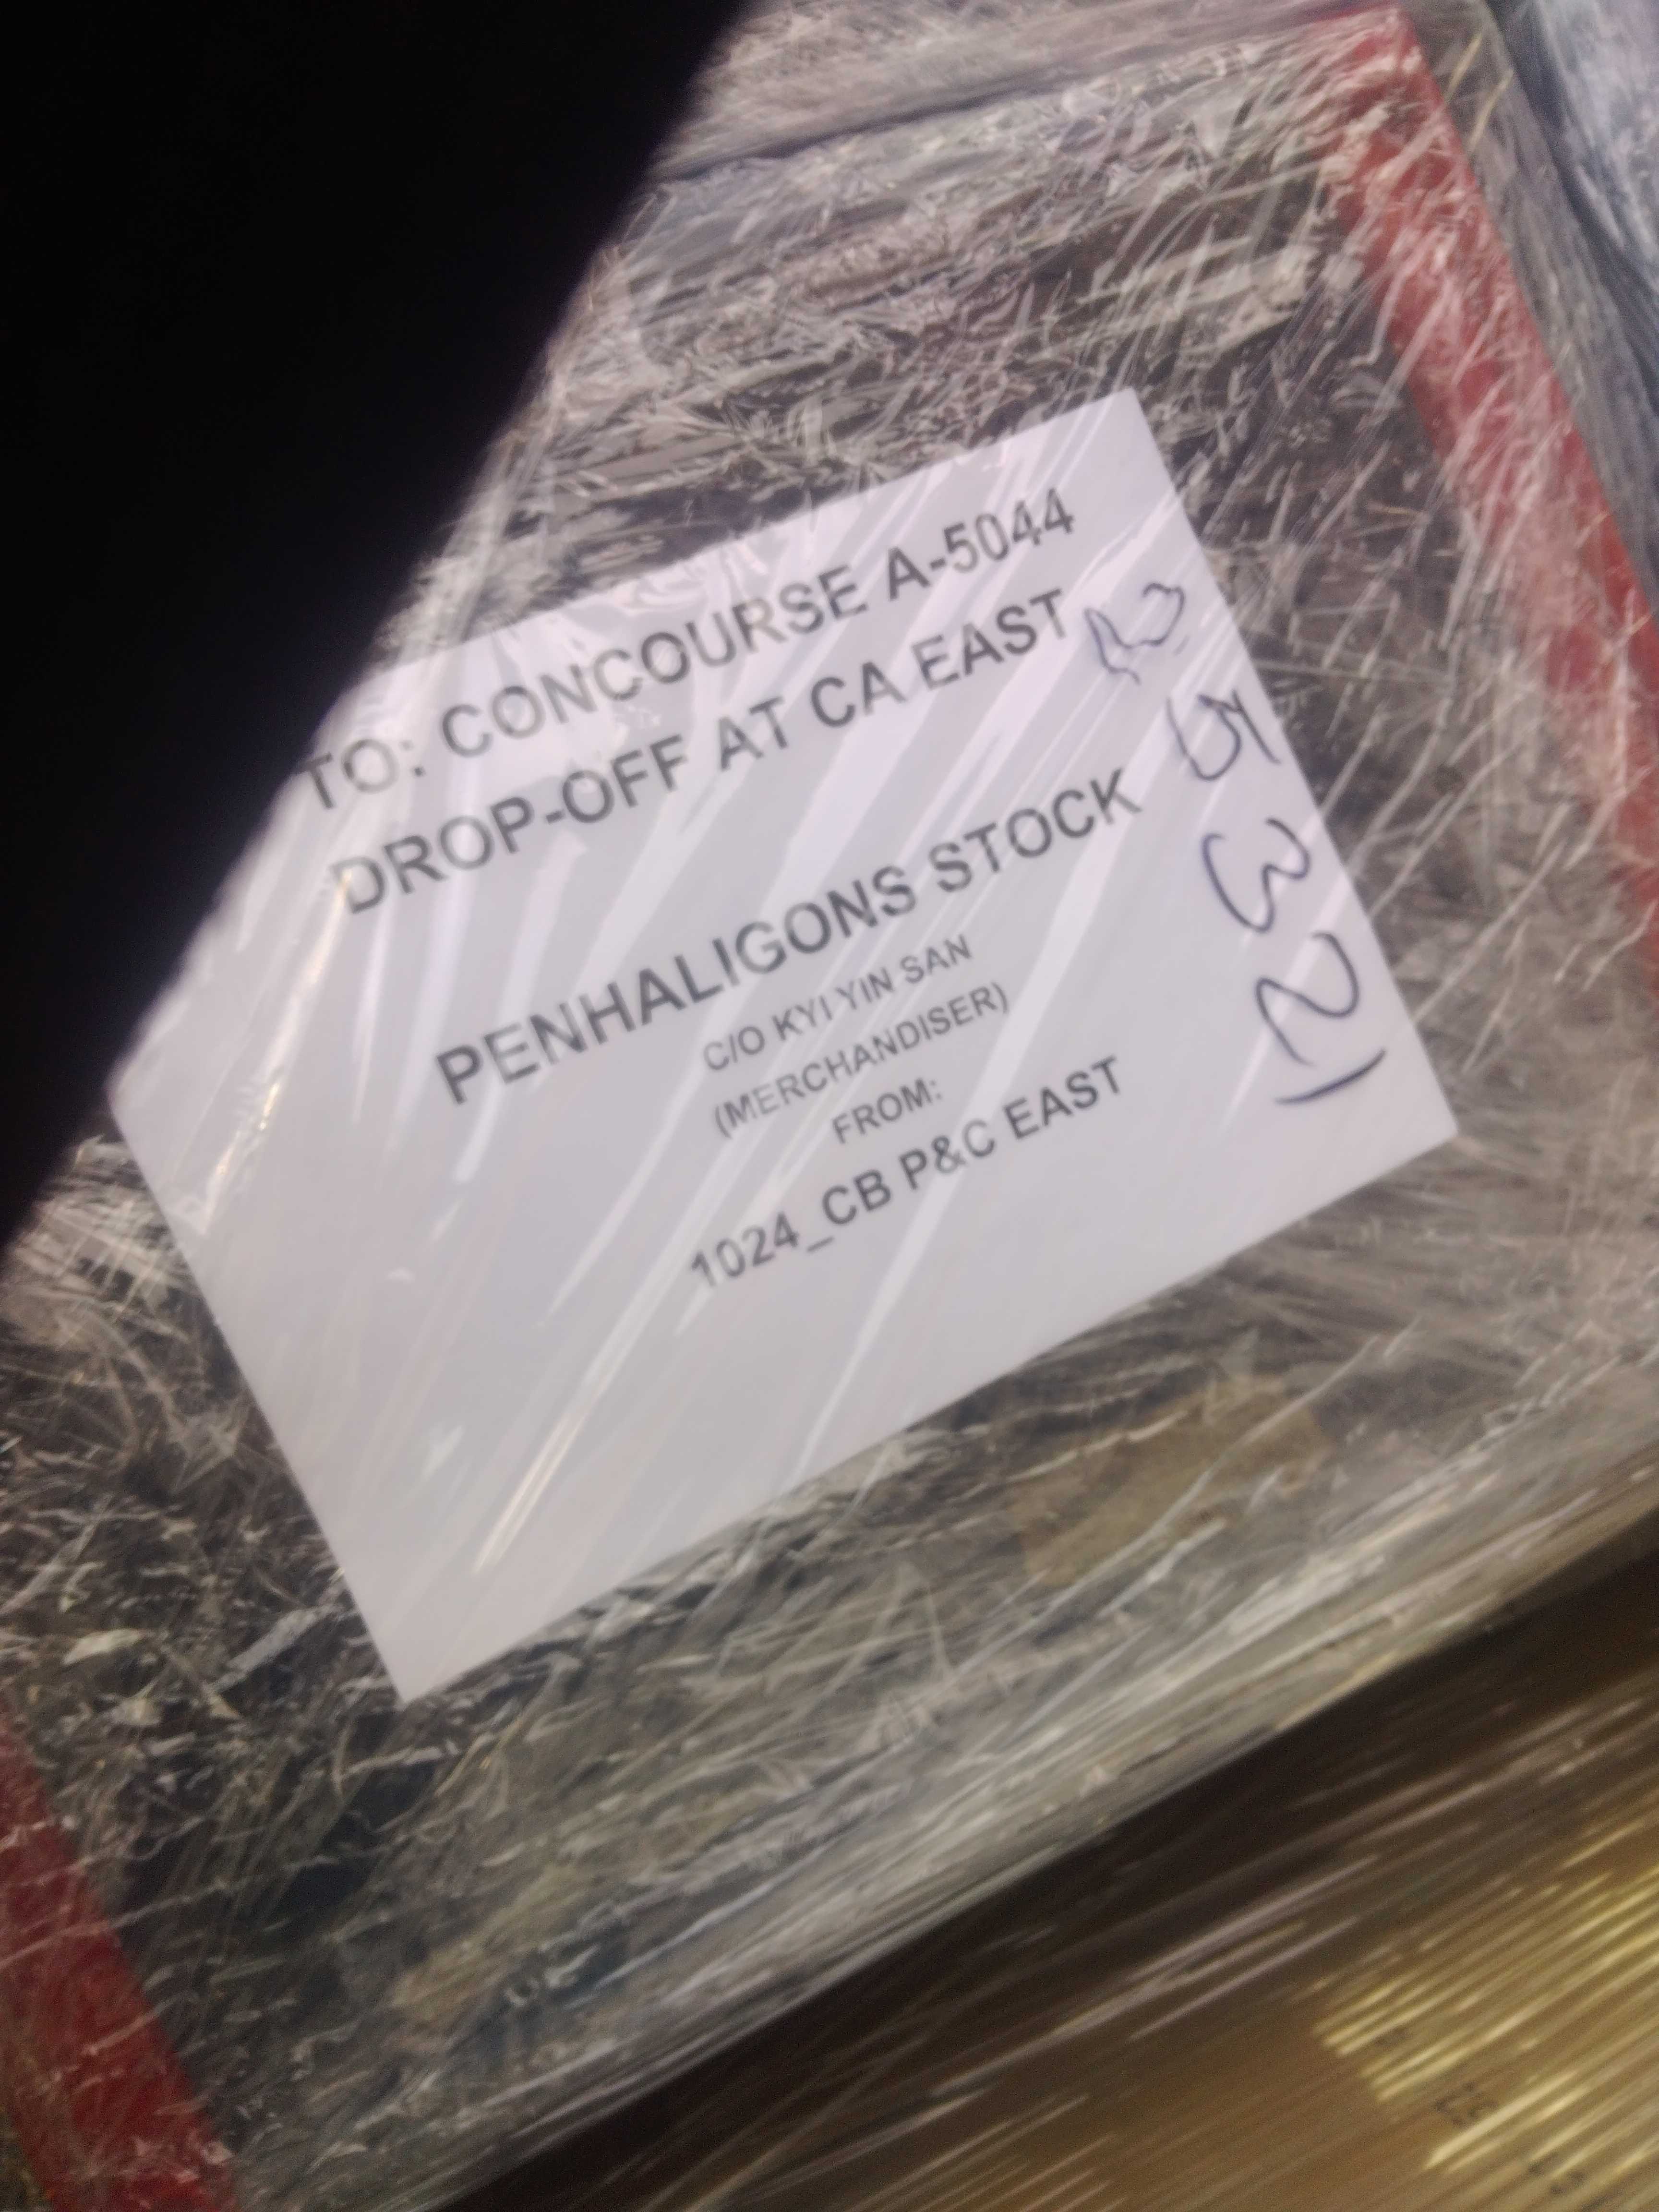 TO: CONCOURSE A-5044
DROP-OFF AT CA EAST
PENHALIGONS STOCK
C/O KYI YIN SAN
(MERCHANDISER)
FROM:
1024_CB P&C EAST
5321